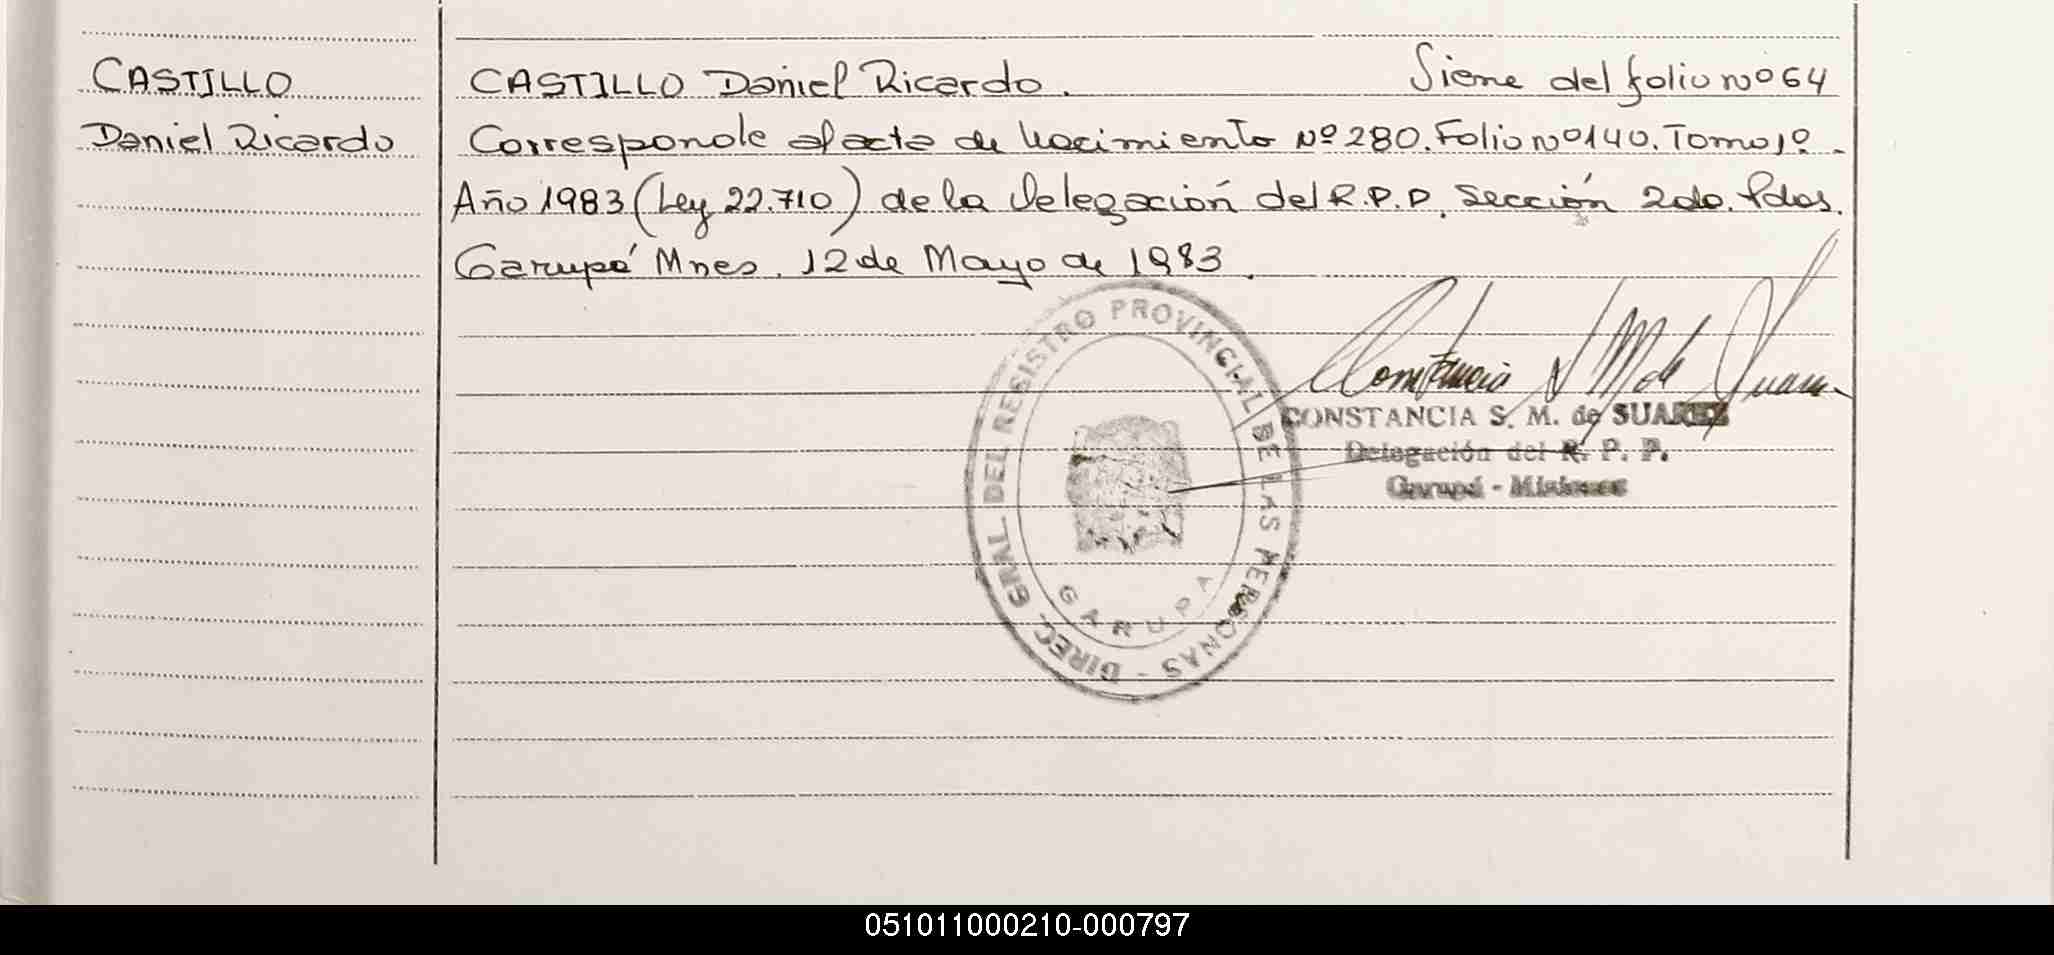 CASTILLO
Daniel Ricardo
CASTILLO Daniel Ricardo. Viene del folio Nº 64
Corresponde al acta de Nacimiento Nº 280. Folio Nº 140. Tomo 1º.
Año 1983 (Ley 22.710) de la Delegación del R.P.P. Sección 2da. Pdas.
Garupá Mnes, 12 de Mayo de 1983.
DIREC. GRAL DEL REGISTRO PROVINCIAL DE LAS PERSONAS -
GARUPA
CONSTANCIA S. M. de SUAREZ
Delegación del R. P. P.
Garupá - Misiones
051011000210-000797